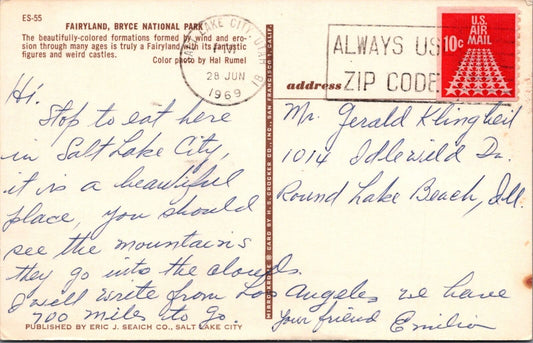 ES-55
FAIRYLAND, BRYCE NATIONAL PARK
The beautifully-colored formations formed by wind and ero-
sion through many ages is truly a Fairyland with its fantastic
figures and weird castles.
Color photo by Hal Rumel
SALT LAKE CITY, UTAH
PM
28 JUN
1969
ALWAYS US
ZIP CODE
U.S.
AIR
MAIL
10c
address
Hi.
Stop to eat here
in Salt Lake City,
it is a beautiful
place, you should
see the mountains
they go into the clouds.
I will write from Los Angeles, we have
700 miles to go.
Your friend Emilio
Mr. Gerald Klingbeil
1014 Idlewild Dr.
Round Lake Beach, Ill.
MIRRO-KROME ® CARD BY H. S. CROCKER CO., INC., SAN FRANCISCO 1, CALIF.
PUBLISHED BY ERIC J. SEAICH CO., SALT LAKE CITY